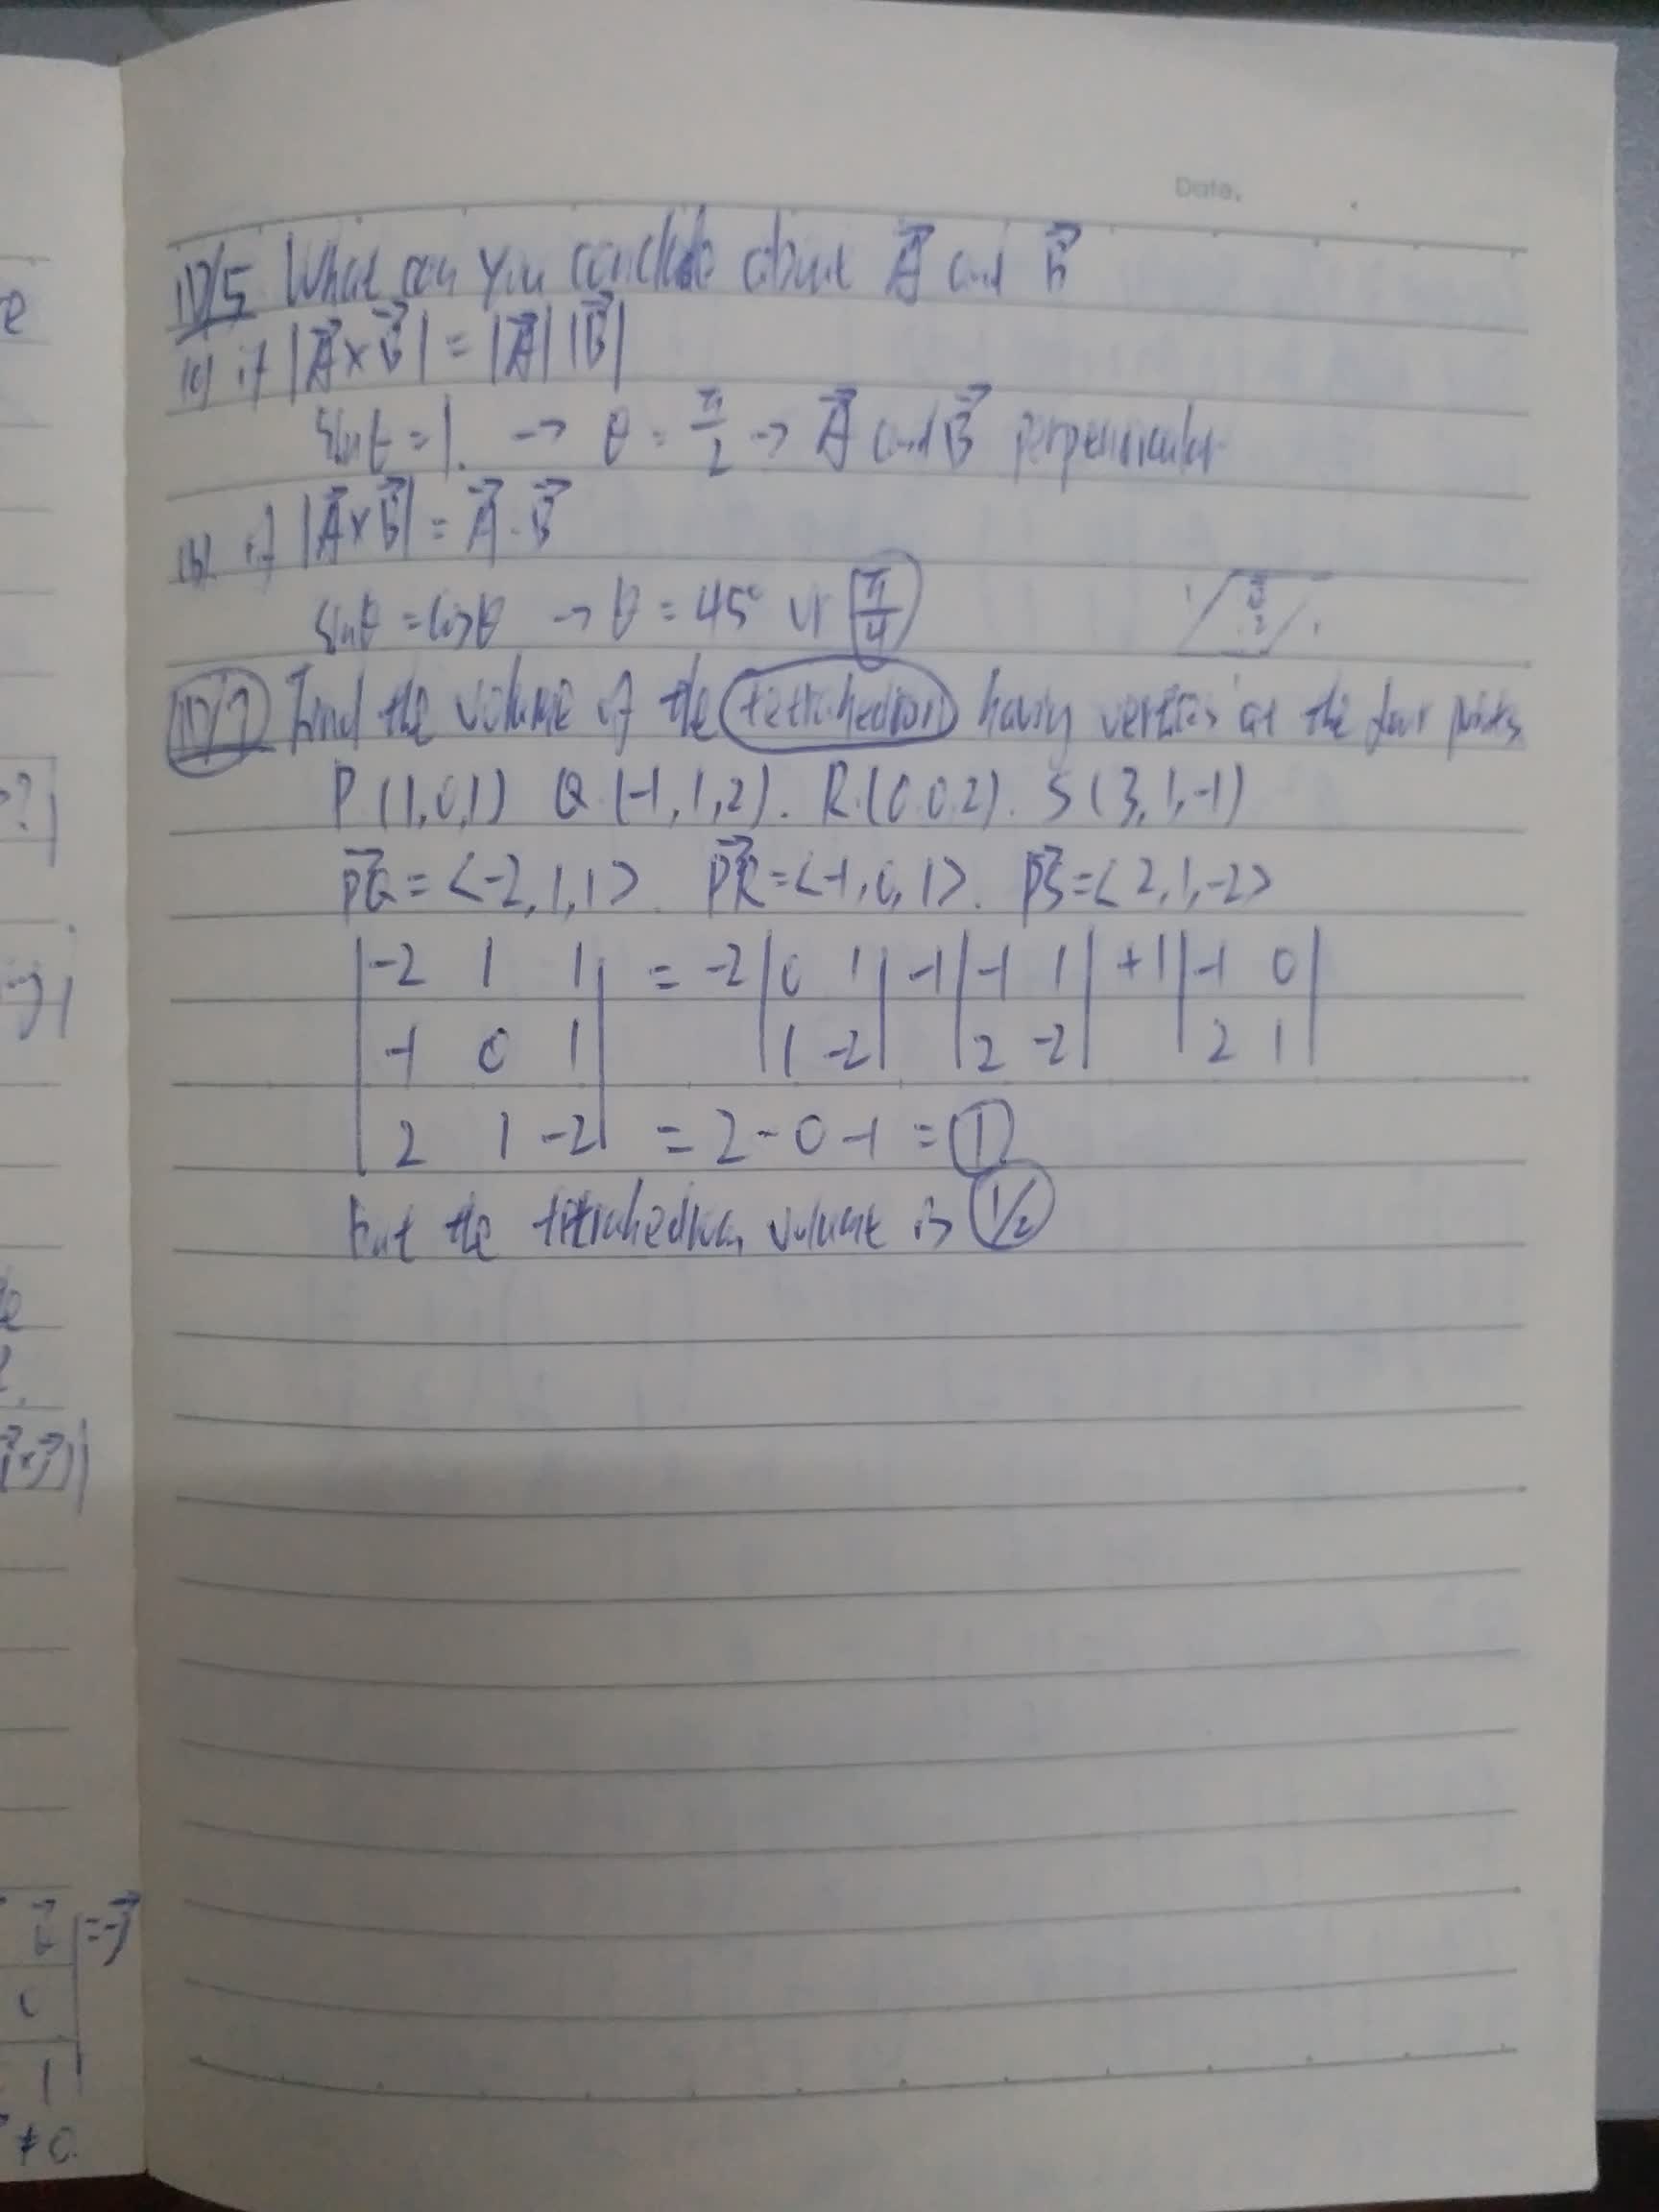 Date.
1D/5 What can you conclude about A⃗ and B⃗
(a) if |A⃗×B⃗| = |A⃗| |B⃗|
sinθ = 1. → θ = π/2 → A⃗ and B⃗ perpendicular
(b) if |A⃗×B⃗| = A⃗·B⃗
sinθ = cosθ → θ = 45° or π/4
1D/7 Find the volume of the tetrahedron having vertices at the four points
P (1,0,1) Q (-1,1,2). R (0.0.2). S (3,1,-1)
P⃗Q = <-2,1,1>. P⃗R = <-1,0,1>. P⃗S = <2,1,-2>
|-2 1 1| = -2|0 1| -1|-1 1| +1|-1 0|
|-1 0 1| |1 -2| |2 -2| |2 1|
|2 1 -2| = 2 - 0 -1 = 1
But the tetrahedron volume is 1/2